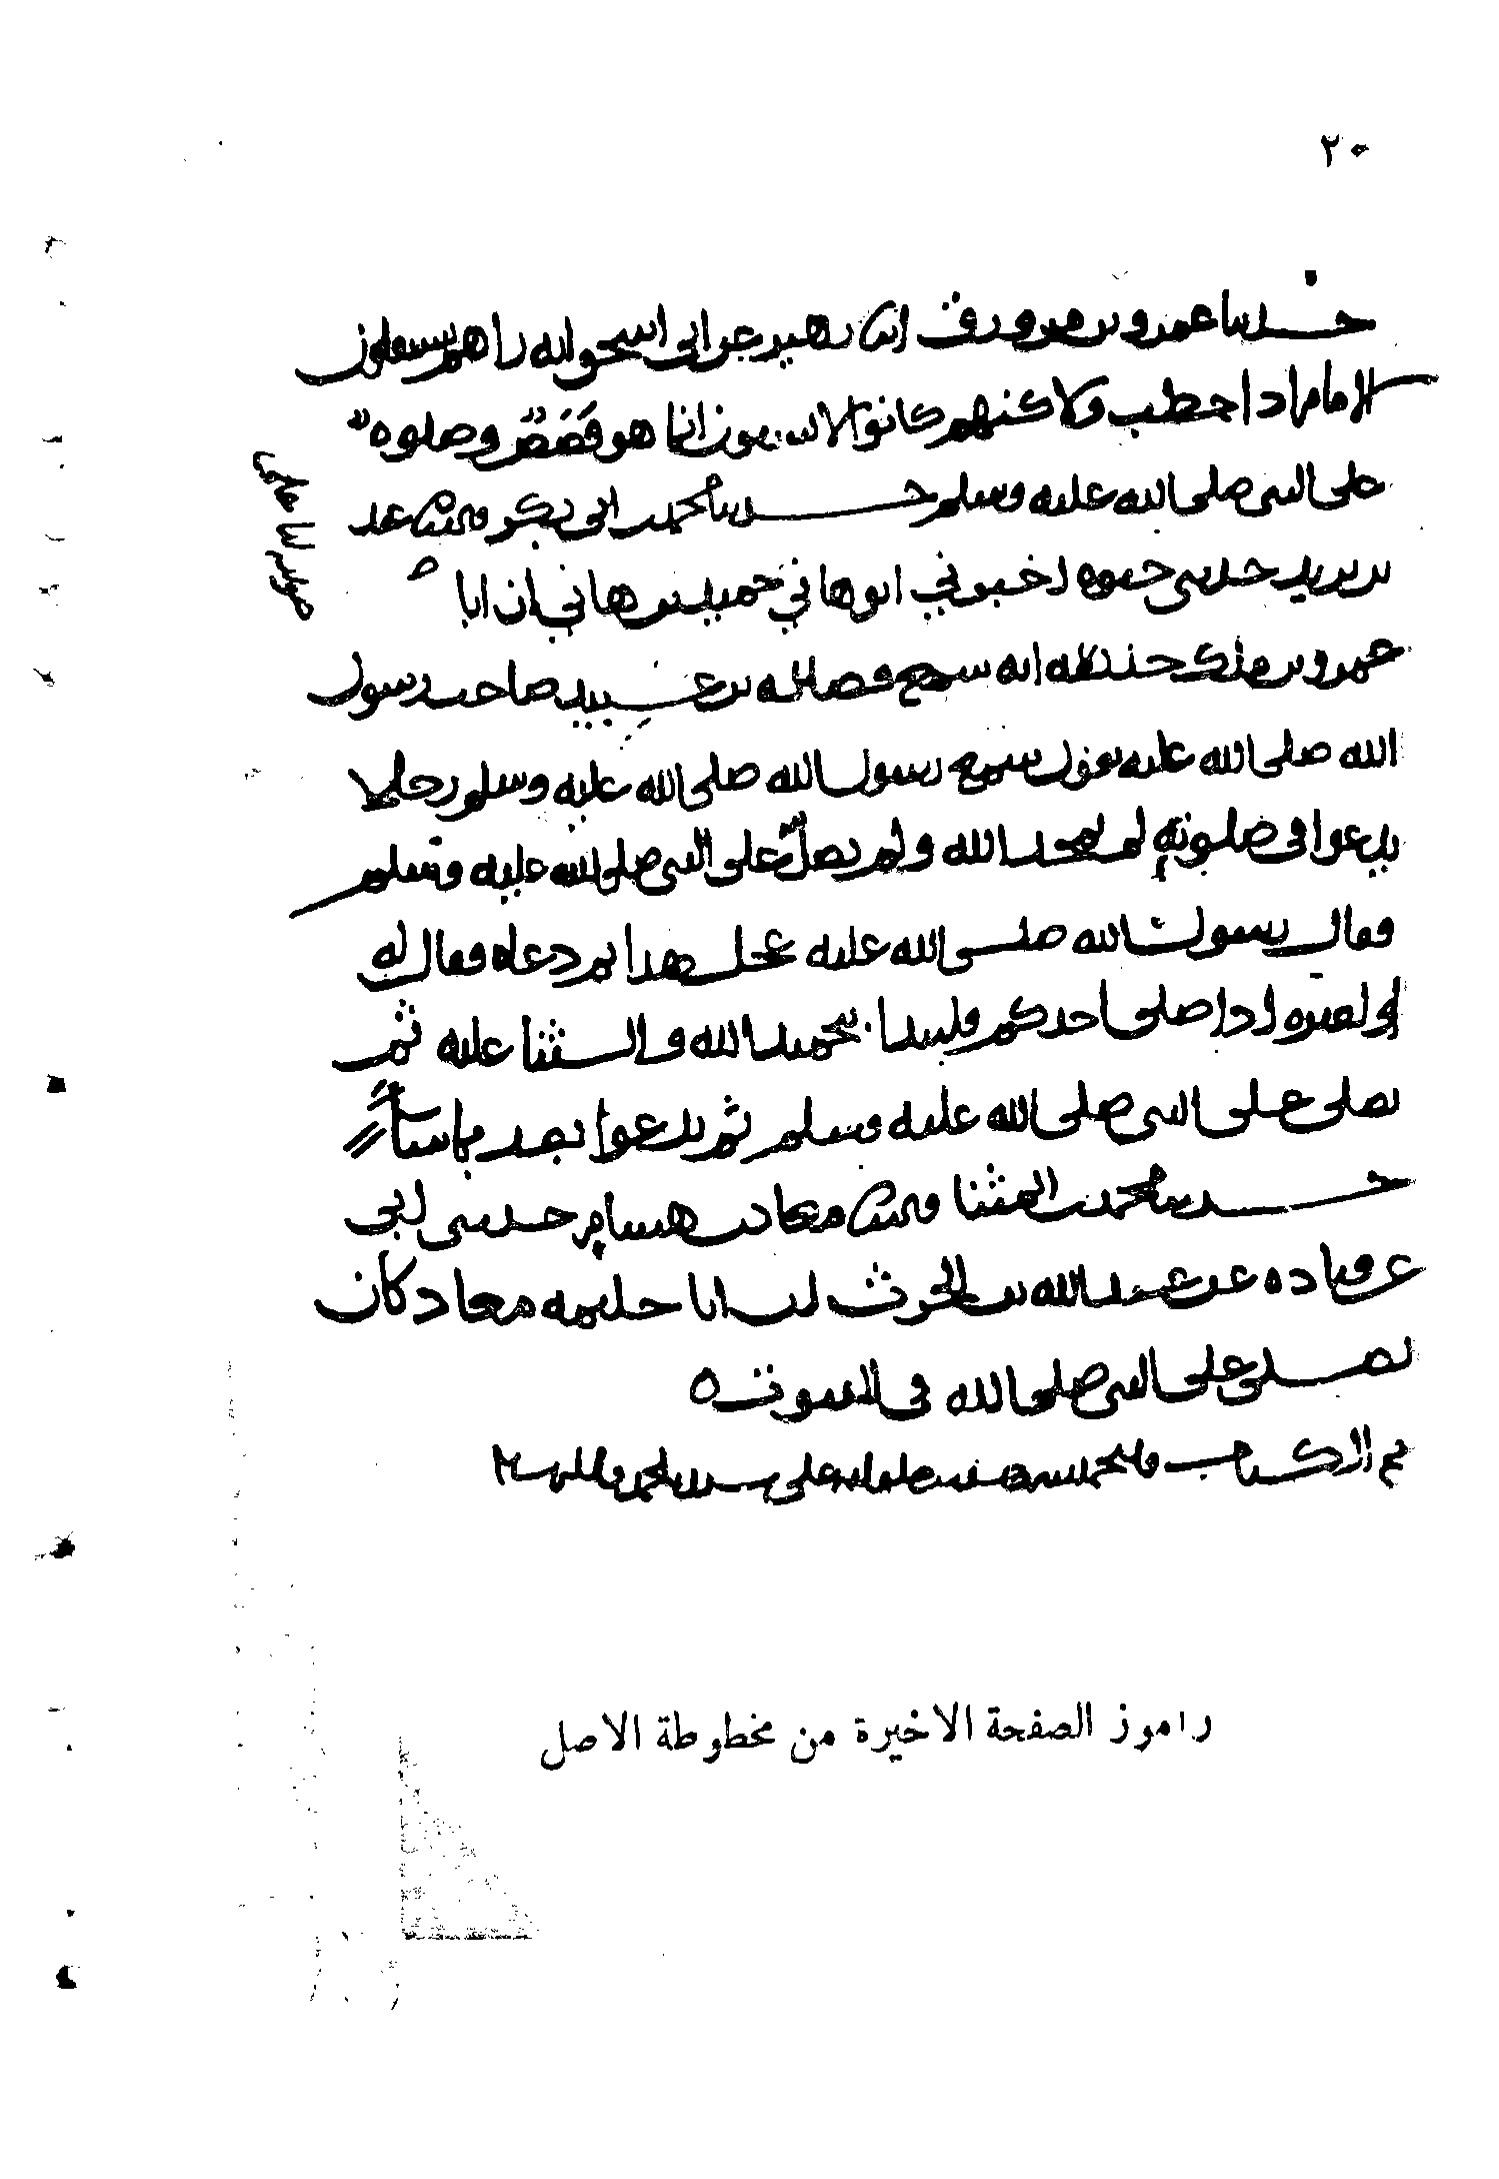 ٢٠
حدثنا عمرو بن مرزوق انبا زهير عن ابي اسحق انه راهم يستقبلون
الامام اذا خطب ولاكنهم كانوا لا يسبعون انما هو قصص وصلوه
على النبي صلى الله عليه وسلم حدثنا محمد بن ابي بكر قال ثنا عبد
بن يزيد حدثني حيوه اخبرني ابو هاني حميد بن هاني ان ابا
عمرو بن ملك حدثه انه سمع فضاله بن عبيد صاحب رسول
الله صلى الله عليه يقول سمع رسول الله صلى الله عليه وسلم رجلا
يدعوا في صلوته لم يحمد الله ولم يصل على النبي صلى الله عليه وسلم
فقال رسول الله صلى الله عليه عجل هذا ثم دعاه فقال له
او لغيره اذا صلى احدكم فليبدا بتحميد الله والثنا عليه ثم
يصلي على النبي صلى الله عليه وسلم ثم يدعوا بعد بما شا
حدثنا محمد بن المثنا قال ثنا معاذ بن هشام حدثني ابي
عن قتاده عن عبد الله بن الحرث ان ابا حليمه معاذ كان
يصلي على النبي صلى الله في القنوت ه
تم الكتاب والحمد لله على سيدنا محمد
راموز الصفحة الاخيرة من مخطوطة الاصل